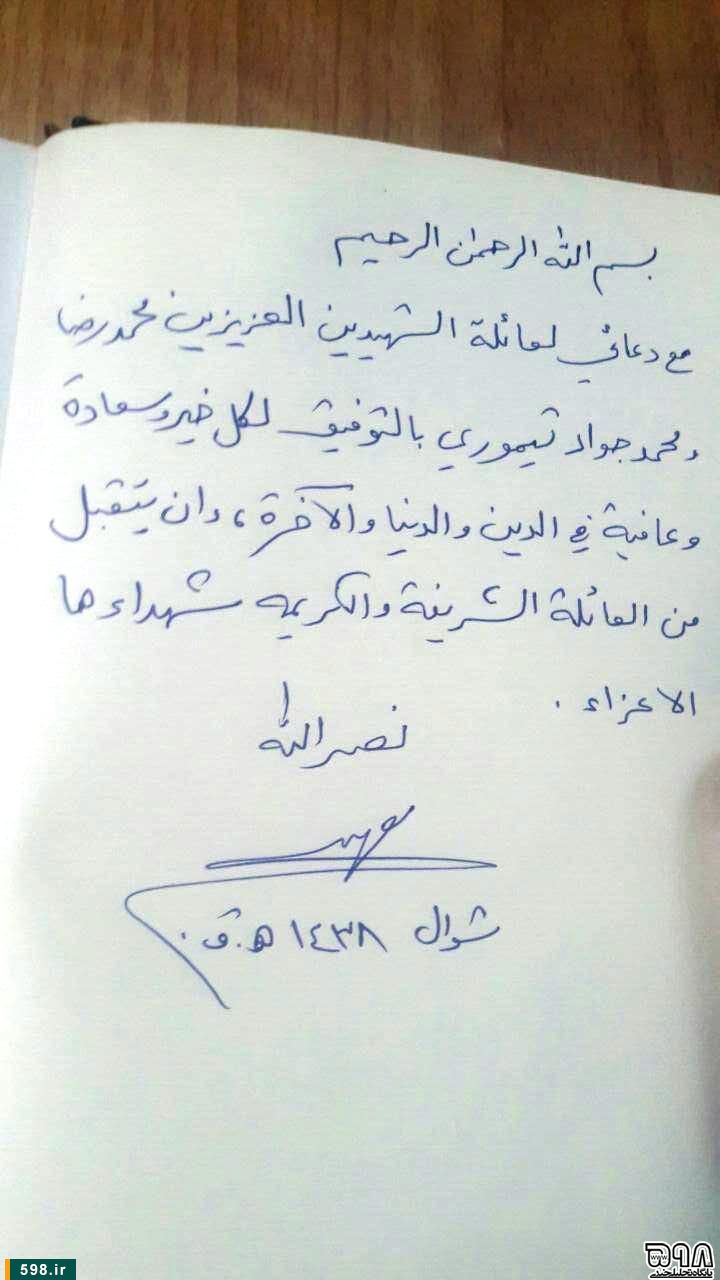 بسم الله الرحمن الرحيم
مع دعائي لعائلة الشهيدين العزيزين محمد رضا
ومحمد جواد تيموري بالتوفيق لكل خير وسعادة
وعافية في الدين والدنيا والآخرة، وان يتقبل
من العائلة الشريفة والكريمه شهداءها
الاعزاء.
نصر الله
شوال ١٤٣٨ هـ.ق.
598.ir
۵۹۸
www